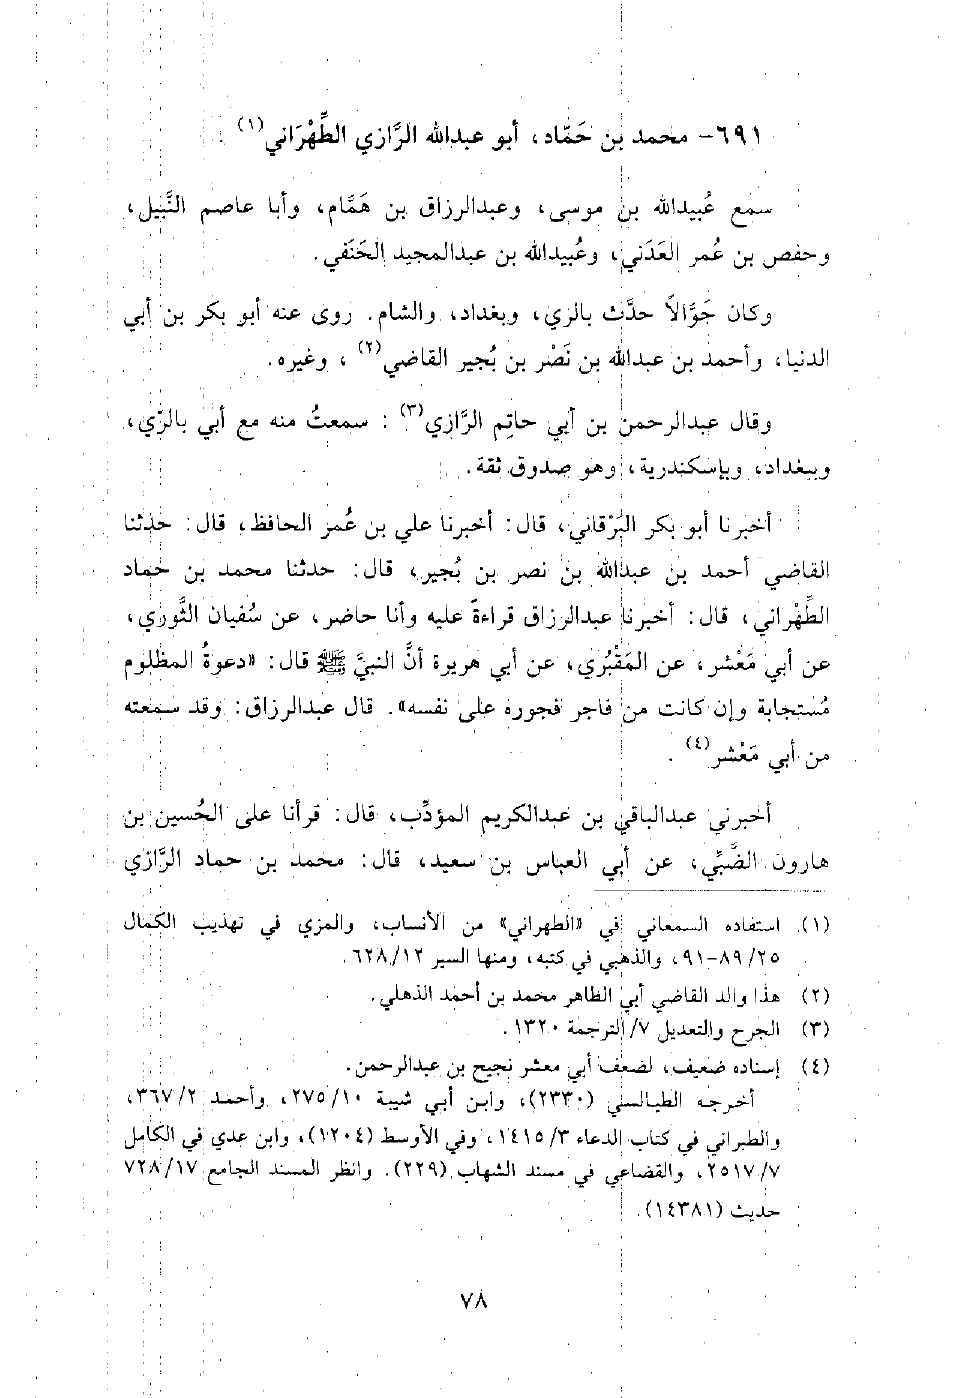 ٦٩١- محمد بن حَمّاد، أبو عبدالله الرَّازي الطِّهْرَاني(١)
سمع عُبيدالله بن موسى، وعبدالرزاق بن هَمَّام، وأبا عاصم النَّبيل،
وحفص بن عُمر العَدَني، وعُبيدالله بن عبدالمجيد الحَنَفي.
وكان جَوَّالاً حدَّث بالري، وبغداد، والشام. روى عنه أبو بكر بن أبي
الدنيا، وأحمد بن عبدالله بن نَصْر بن بُجير القاضي(٢)، وغيره.
وقال عبدالرحمن بن أبي حاتِم الرَّازي(٣): سمعتُ منه مع أبي بالرَّي،
وببغداد، وبإسكندرية، وهو صدوق ثقة.
أخبرنا أبو بكر البَرْقاني، قال: أخبرنا علي بن عُمر الحافظ، قال: حدثنا
القاضي أحمد بن عبدالله بن نصر بن بُجير، قال: حدثنا محمد بن حماد
الطِّهْراني، قال: أخبرنا عبدالرزاق قراءةً عليه وأنا حاضر، عن سُفيان الثَّوري،
عن أبي مَعْشر، عن المَقْبُري، عن أبي هريرة أنَّ النبيَّ ﷺ قال: «دعوةُ المظلوم
مُستجابة وإن كانت من فاجر ففجوره على نفسه». قال عبدالرزاق: وقد سمعته
من أبي مَعْشر(٤).
أخبرني عبدالباقي بن عبدالكريم المؤدِّب، قال: قرأنا على الحُسين بن
هارون الضَّبِّي، عن أبي العباس بن سعيد، قال: محمد بن حماد الرَّازي
(١) استفاده السمعاني في «الطهراني» من الأنساب، والمزي في تهذيب الكمال
٢٥/ ٨٩-٩١، والذهبي في كتبه، ومنها السير ١٢/ ٦٢٨.
(٢) هذا والد القاضي أبي الطاهر محمد بن أحمد الذهلي.
(٣) الجرح والتعديل ٧/ الترجمة ١٣٢٠.
(٤) إسناده ضعيف، لضعف أبي معشر نجيح بن عبدالرحمن.
أخرجه الطيالسي (٢٣٣٠)، وابن أبي شيبة ١٠/ ٢٧٥، وأحمد ٢/ ٣٦٧،
والطبراني في كتاب الدعاء ٣/ ١٤١٥، وفي الأوسط (١٢٠٤)، وابن عدي في الكامل
٧/ ٢٥١٧، والقضاعي في مسند الشهاب (٢٢٩). وانظر المسند الجامع ١٧/ ٧٢٨
حديث (١٤٣٨١).
٧٨